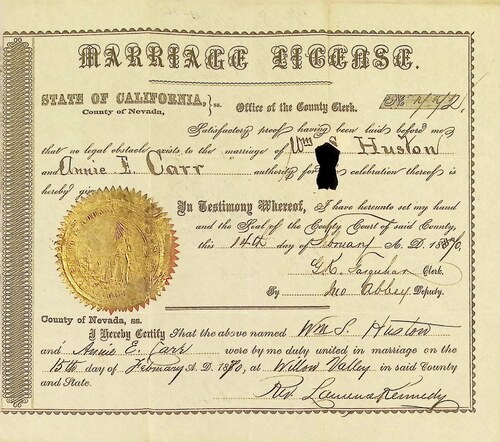 MARRIAGE LICENSE.
STATE OF CALIFORNIA, } ss.
County of Nevada,
Office of the County Clerk.
Satisfactory proof having been laid before me
that no legal obstacle exists to the marriage of Wm S Huston
and Annie E. Carr authority for celebration thereof is
hereby
In Testimony Whereof, I have hereunto set my hand
and the Seal of the County Court of said County,
this 14th day of February A. D. 18
G.K. Farquhar Clerk.
By Jno Abbey Deputy.
County of Nevada, ss.
I Hereby Certify That the above named Wm S. Huston
and Annie E. Carr were by me duly united in marriage on the
15th day of February A. D. 1880, at Willow Valley in said County
and State.
Rev. Kennedy